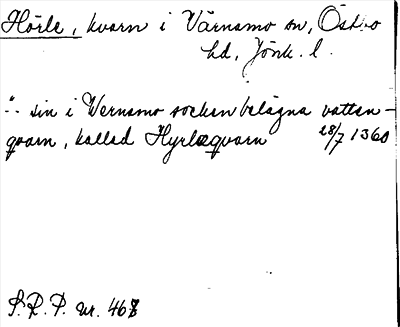 Hörle, kvarn i Värnamo sn, Östbo
hd, Jönk. l.
"- sin i Wernamo socken belägna vatten-
qvarn, kallad Hyrlæqvarn 28/7 1360
S.R.P. nr. 467